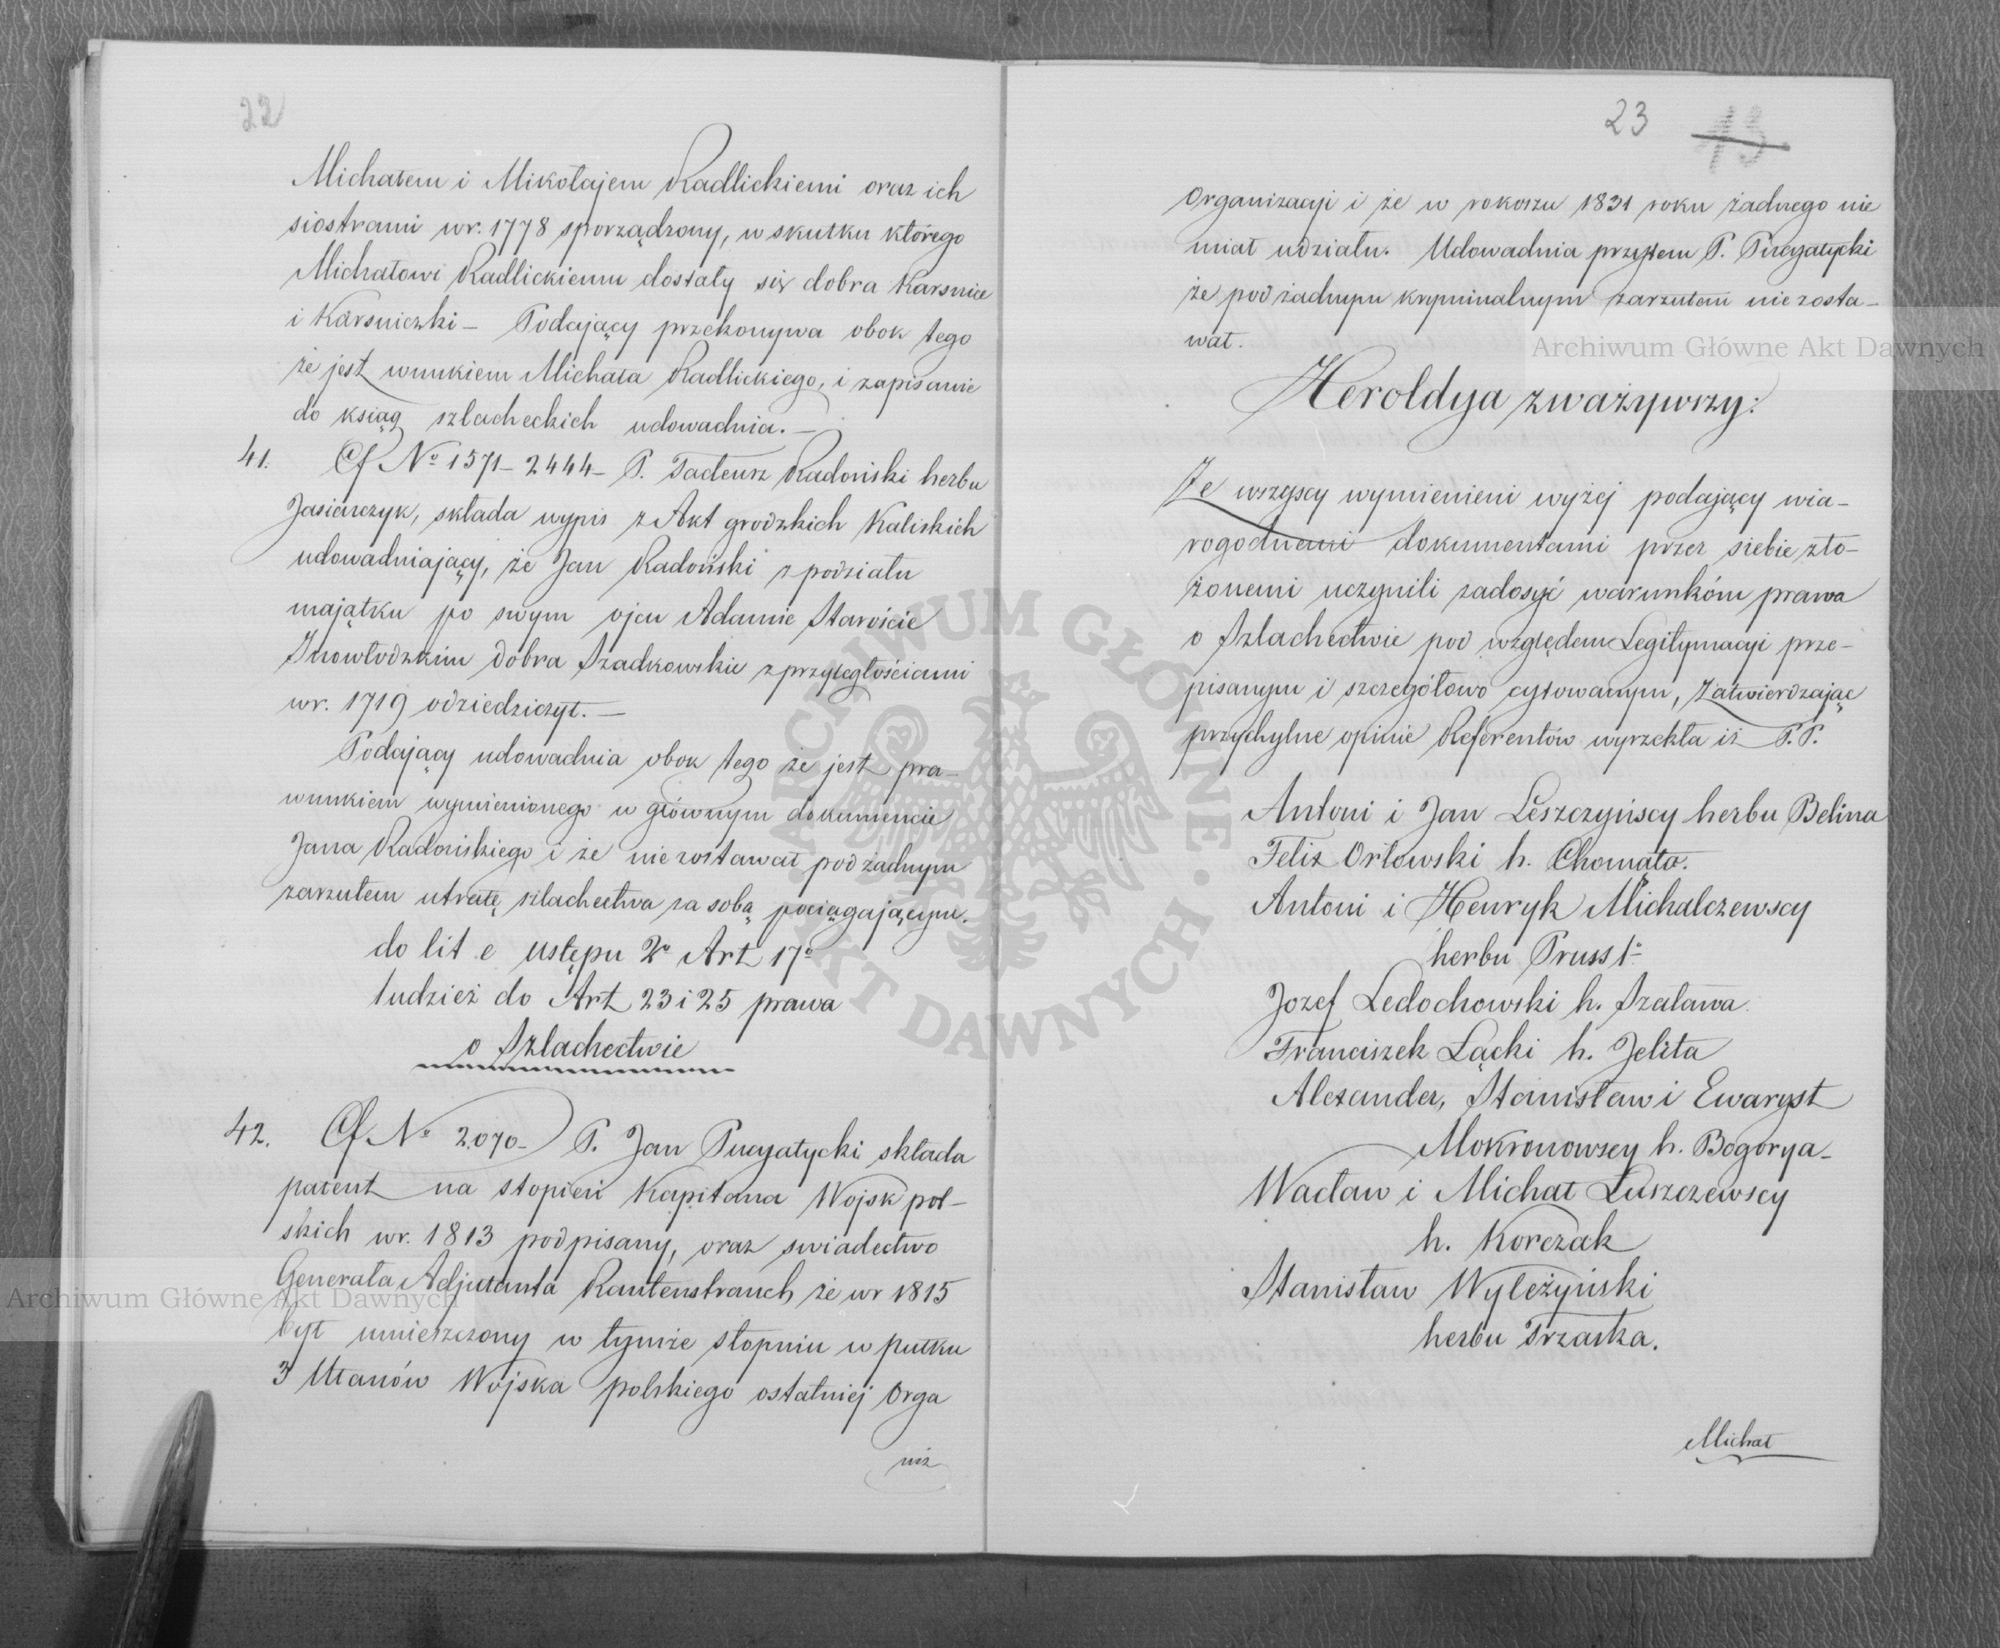 22
Michałem i Mikołajem Radlickiemi oraz ich
siostrami w r. 1778 sporządzony, w skutku którego
Michałowi Radlickiemu dostały się dobra Karsnice
i Karsniczki – Podający przekonywa obok tego
że jest wnukiem Michała Radlickiego, i zapisanie
do ksiąg szlacheckich udowadnia. –
41. Cf No 1571 – 2444 – P. Tadeusz Radoński herbu
Jasieńczyk, składa wypis z Akt grodzkich Kaliskich
udowadniający, że Jan Radoński z podziału
majątku po swym ojcu Adamie Staroście
Inowłodzkim dobra Szadkowskie z przyległościami
w r. 1719 odziedziczył. –
Podający udowadnia obok tego że jest pra-
wnukiem wymienionego w głównym dokumencie
Jana Radońskiego i że nie zostawał pod żadnym
zarzutem utratę szlachectwa za sobą pociągającym.
do lit e ustępu 2o Art 17o
tudzież do Art 23 i 25 prawa
o Szlachectwie
42. Cf No 2070 – P. Jan Puzyatycki składa
patent na stopień Kapitana Wojsk pol-
skich w r. 1813 podpisany, oraz swiadectwo
Generała Adjutanta Rautenstrauch że w r 1815
był umieszczony w tymże stopniu w pułku
3 Ułanów Wojska polskiego ostatniej Orga
niz
23 13
Organizacyi i że w rokoszu 1831 roku żadnego nie
miał udziału. Udowadnia przytem P. Puzyatycki
że pod żadnym kryminalnym zarzutem nie zosta-
wał.
Heroldya zważywszy:
Że wszyscy wymienieni wyżej podający wia-
rogodnemi dokumentami przez siebie zło-
żonemi uczynili zadosyć warunkóm prawa
o Szlachectwie pod względem Legitymacyi prze-
pisanym i szczegółowo cytowanym, Zatwierdzając
przychylne opinie Referentów wyrzekła iż P.P.
Antoni i Jan Leszczyńscy herbu Belina
Felix Orłowski h. Chomąto.
Antoni i Henryk Michalczewscy
herbu Pruss 1o
Jozef Ledochowski h. Szaława.
Franciszek Łącki h. Jelita
Alexander, Stanisław i Ewaryst
Mokronowscy h. Bogorya –
Wacław i Michał Łuszczewscy
h. Korczak
Stanisław Wyleżyński
herbu Trzaska.
Michał
Archiwum Główne Akt Dawnych
Archiwum Główne Akt Dawnych
ARCHIWUM GŁÓWNE · AKT DAWNYCH ·